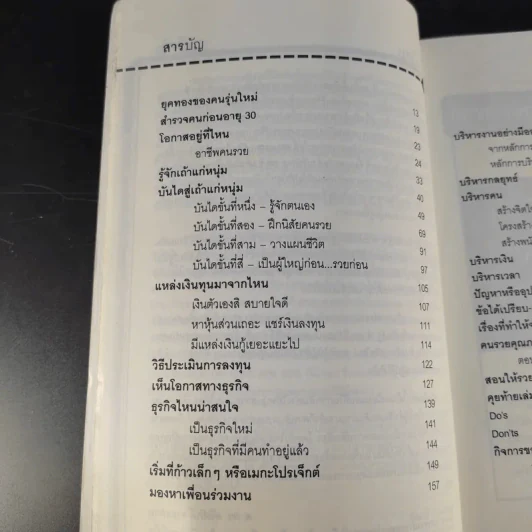 สารบัญ
ยุคทองของคนรุ่นใหม่ 13
สำรวจคนก่อนอายุ 30 19
โอกาสอยู่ที่ไหน 23
อาชีพคนรวย 24
รู้จักเถ้าแก่หนุ่ม 33
บันไดสู่เถ้าแก่หนุ่ม 46
บันไดขั้นที่หนึ่ง – รู้จักตนเอง 49
บันไดขั้นที่สอง – ฝึกนิสัยคนรวย 69
บันไดขั้นที่สาม – วางแผนชีวิต 91
บันไดขั้นที่สี่ – เป็นผู้ใหญ่ก่อน...รวยก่อน 97
แหล่งเงินทุนมาจากไหน 105
เงินตัวเองสิ สบายใจดี 107
หาหุ้นส่วนเถอะ แชร์เงินลงทุน 111
มีแหล่งเงินกู้เยอะแยะไป 114
วิธีประเมินการลงทุน 122
เห็นโอกาสทางธุรกิจ 127
ธุรกิจไหนน่าสนใจ 139
เป็นธุรกิจใหม่ 141
เป็นธุรกิจที่มีคนทำอยู่แล้ว 144
เริ่มที่ก้าวเล็กๆ หรือเมกะโปรเจ็กต์ 149
มองหาเพื่อนร่วมงาน 157
บริหารงานอย่างมือ
จากหลักการ
หลักการบริ
บริหารกลยุทธ์
บริหารคน
สร้างจิตใ
โครงสร้า
สร้างพนั
บริหารเงิน
บริหารเวลา
ปัญหาหรืออุป
ข้อได้เปรียบ-
เรื่องที่ทำให้
คนรวยคุณภ
ตอ
สอนให้รวย
คุยท้ายเล่ม
Do's
Don'ts
กิจการขอ